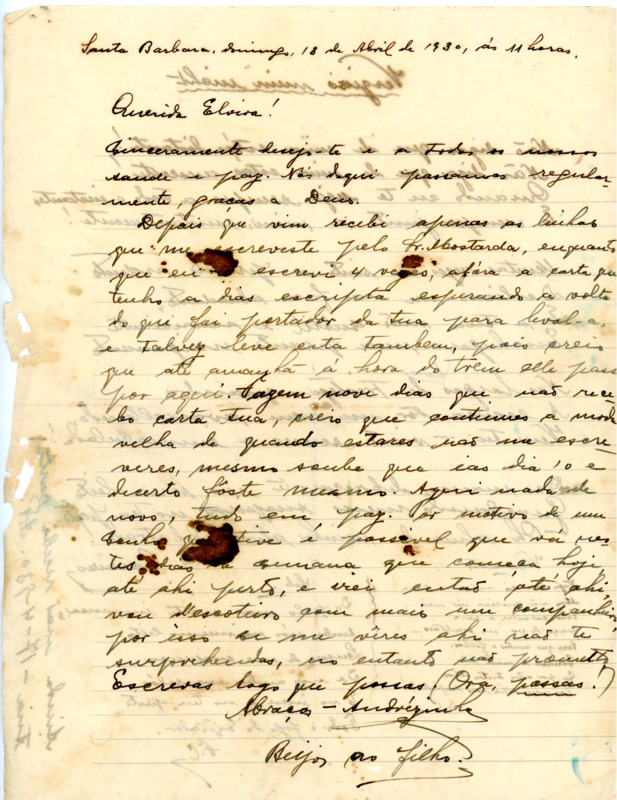 Santa Barbara, domingo, 18 de Abril de 1930, ás 11 horas.
Querida Elvira!
Sinceramente desejo-te e a todos os nossos
saude e paz. Nós daqui passamos regular-
mente, graças a Deus.
Depois que vim recebi apenas as linhas
que me escreveste pelo Sr. Mostarda, enquanto
que eu escrevi 4 vezes, afóra a carta que
tenho a dias escripta esperando a volta
do que foi portador da tua para leval-a,
e talvez leve esta tambem, pois creio
que até amanhã á hora do trem elle passe
por aqui. Fazem nove dias que não rece-
bo carta tua, creio que continues a moda
velha de quando estares não me escre-
veres, mesmo soube que ias dia 10 e
decerto fôste mesmo. Aqui nada de
novo, tudo em paz. Por motivo de um
sonho que tive é possevel que vá nes-
tes dias a semana que começa hoje,
até ahi perto, e irei então até ahi,
vou descoteiro com mais um companheiro
por isso si me vêres ahi não te
surprehendas, no entanto não prometto.
Escrevas logo que possas (Ora, possas!)
Abraços - Andrézinho
Beijos ao filho.